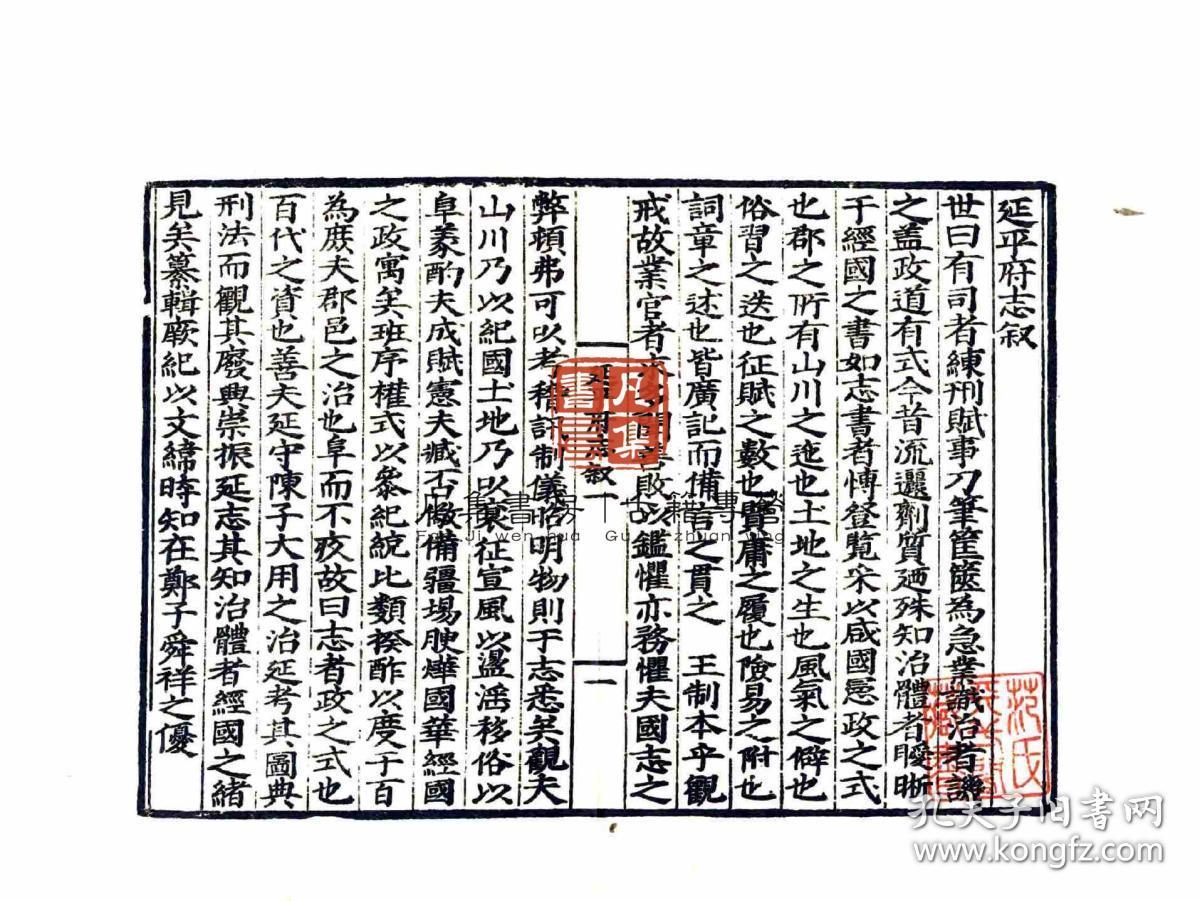 延平府志叙
世曰有司者練刑賦事刀筆筐篋為急業識治者譏
之盖政道有式今昔流邅劑質廼殊知治體者曖晣
于經國之書如志書者慱登覽采以咸國慝政之式
也郡之所有山川之迤也土地之生也風氣之僻也
俗習之迭也征賦之數也賢庸之履也險易之附也
詞章之述也皆廣記而備言之貫之 王制本乎觀
戒故業官者 敗以鑑懼亦務懼夫國志之
叙 一
弊頓弗可以考稽訊制儀昭明物則于志悉矣觀夫
山川乃以紀國土地乃以襄征宣風以盪滛移俗以
阜蓺酌夫成賦憲夫臧否儆備疆埸腴燁國華經國
之政寓矣班序權式以叅紀統比類揆酢以度于百
為庶夫郡邑之治也阜而不疚故曰志者政之式也
百代之資也善夫延守陳子大用之治延考其圖典
刑法而觀其廢興崇振延志其知治體者經國之緒
見矣纂輯厥紀以文締時知在鄭子舜祥之優
凡集書局
凡集書局 古籍專營
Fan Ji wen hua Gu ji zhuan ying
范氏
孔夫子旧书网
www.kongfz.com